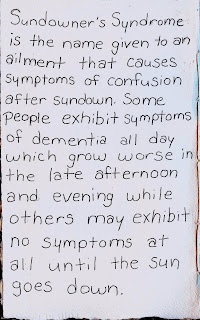 Sundowner's Syndrome
is the name given to an
ailment that causes
symptoms of confusion
after sundown. Some
people exhibit symptoms
of dementia all day
which grow worse in
the late afternoon
and evening while
others may exhibit
no symptoms at
all until the sun
goes down.